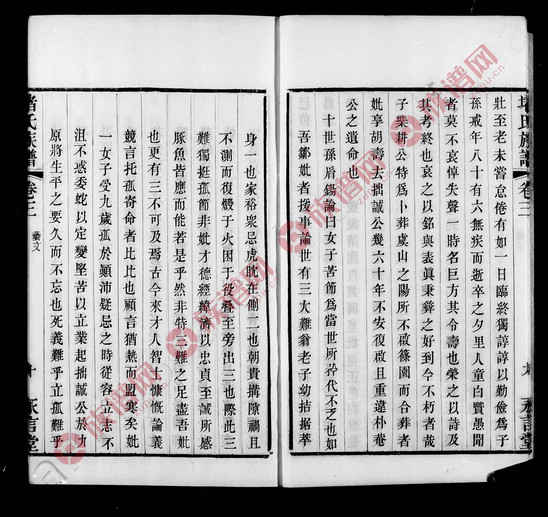 壯至老未嘗怠倦有如一日臨終獨諄諄以勤儉為子
孫戒年八十有六無疾而逝卒之夕里人童白賢愚聞
者莫不哀悼失聲一時名巨方其令壽也榮之以詩及
其考終也哀之以銘與表眞秉彝之好到今不朽者哉
子槃耕公特為卜葬虞山之陽所不啟篠園而合葬者
妣享胡壽去拙誠公幾六十年不安復啟且重違朴菴
公之遺命也
十世孫舄錫論曰女子苦節為當世所矜代不乏也如
吾鄒妣者援事論世有三大難翁老子幼拮据萃
身一也家裕眾忌虎眈在側二也朝貴搆隙禍且
不測而復燬于火困于役疊至旁出三也際此三
難獨挺孤節非妣才德經緯濟以忠貞至誠所感
豚魚皆應而能若是乎然非特三難之足盡吾妣
也更有三不可及焉古今來才人智士慷慨論義
競言托孤寄命者比比也顧言猶熱而盟寒矣妣
一女子受九歲孤於顛沛疑忌之時從容立志不
沮不惑委蛇以定變堅苦以立業起拙誠公於九
原將生平之要久而不忘也死義難乎立孤難乎
族譜
卷三
藝文
十
永言堂
族譜網